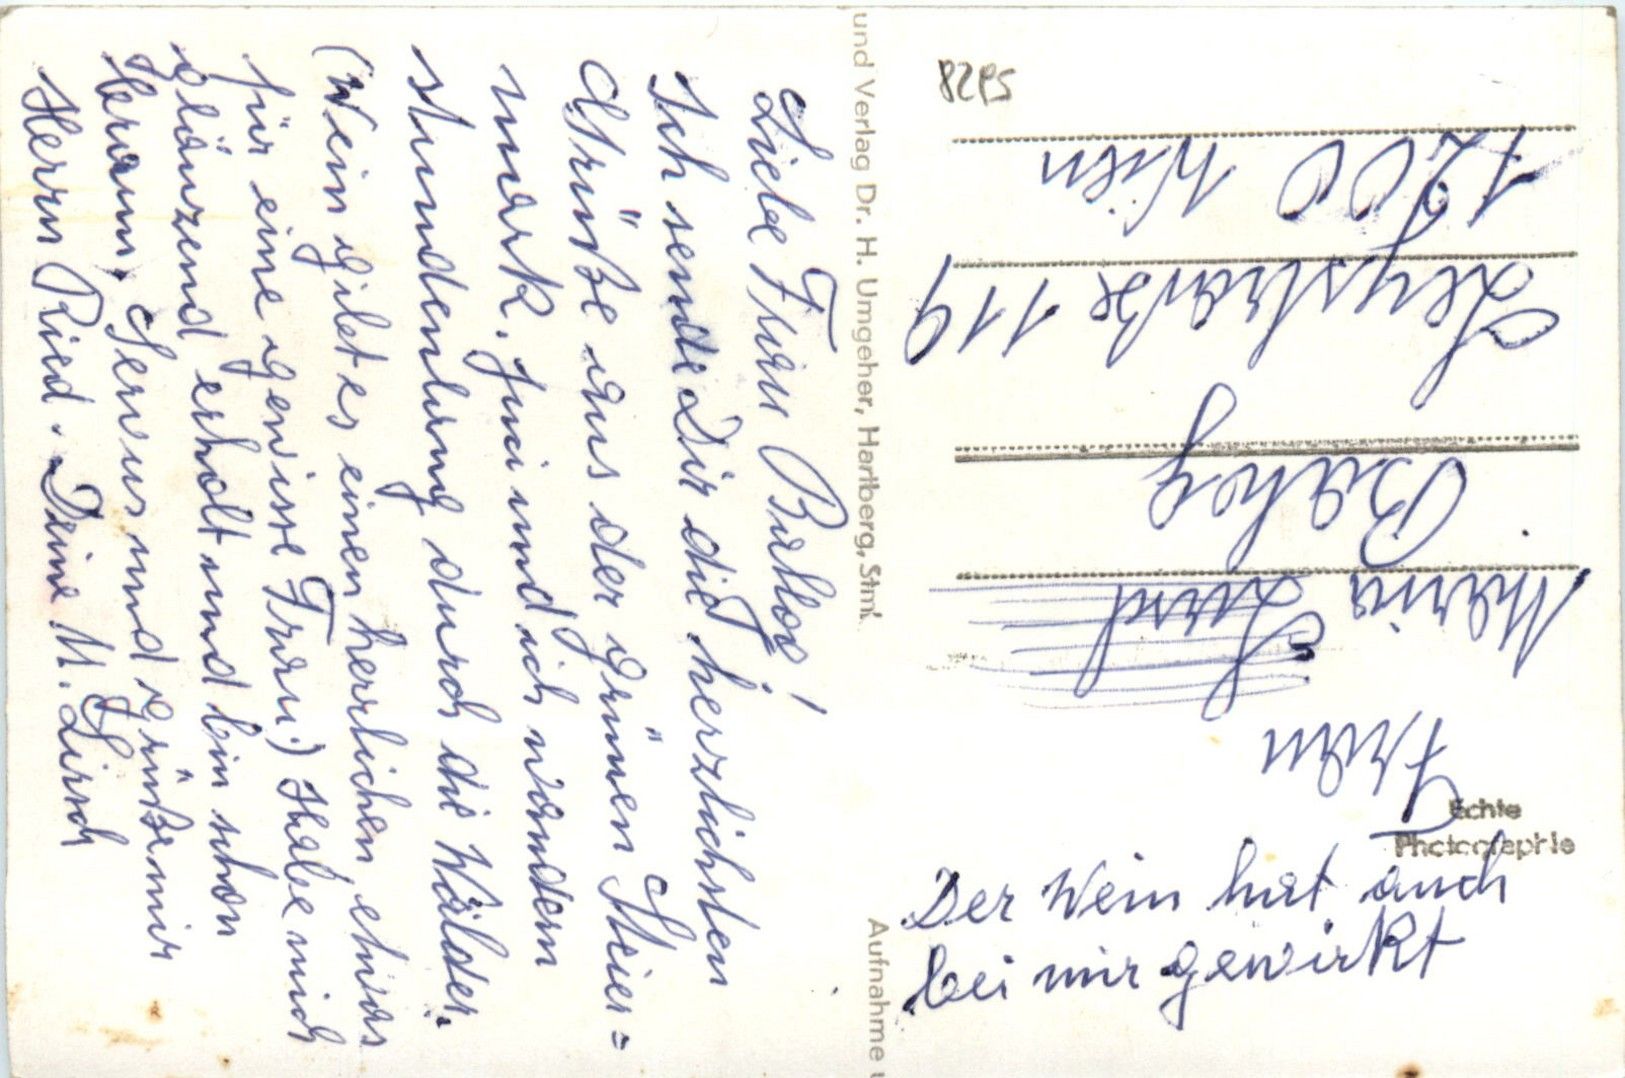 Liebe Frau Bablog!
Ich sende Dir die herzlichsten
Grüße aus der grünen Steier=
mark. Juci und ich wandern
stundenlang durch die Wälder.
(Wein gibt es einen herrlichen, etwas
für eine gewisse Frau.) Habe mich
glänzend erholt und bin schon
braun. Servus und grüße mir
Herrn Ried. Deine M. Lirsch
und Verlag Dr. H. Umgeher, Hartberg, Stmk.
Aufnahme u
Echte
Photographie
Frau
Maria
1200 Wien
Leystraße 119
Der Wein hat auch
bei mir gewirkt